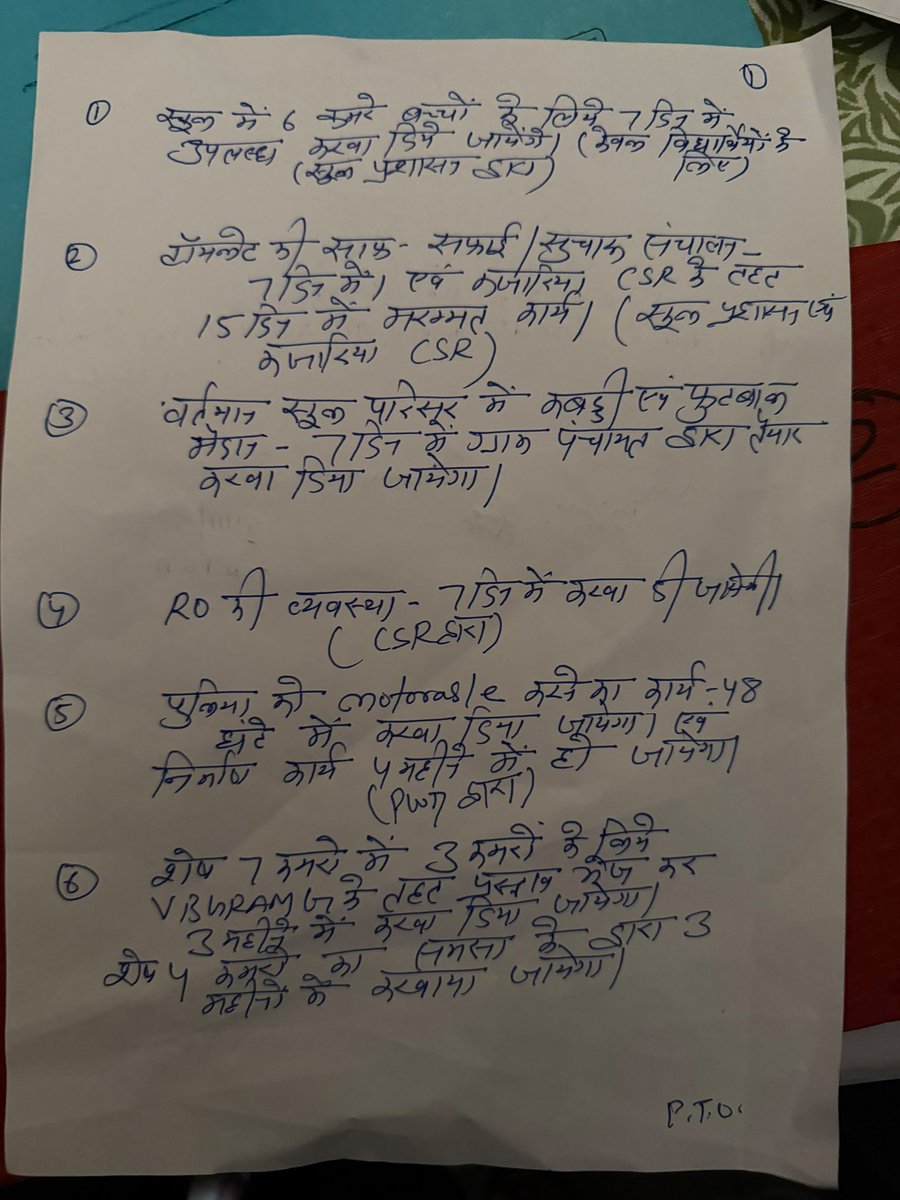 ①
① स्कूल में 6 कमरे बच्चों के लिये 7 दिन में
उपलब्ध करवा दिये जायेंगे। (केवल विद्यार्थियों के
(स्कूल प्रशासन द्वारा) लिए)
② टॉयलेट की साफ-सफाई/सुचारू संचालन -
7 दिन में। एवं कजारिया CSR के तहत
15 दिन में मरम्मत कार्य। (स्कूल प्रशासन एवं
कजारिया CSR)
③ वर्तमान स्कूल परिसर में कबड्डी एवं फुटबाल
मैदान - 7 दिन में ग्राम पंचायत द्वारा तैयार
करवा दिया जायेगा।
④ RO की व्यवस्था - 7 दिन में करवा दी जायेगी।
(CSR द्वारा)
⑤ पुलिया को motorable करने का कार्य - 48
घंटे में करवा दिया जायेगा। एवं
निर्माण कार्य 4 महीने में हो जायेगा।
(PWD द्वारा)
⑥ शेष 7 कमरो में 3 कमरों के लिये
VBGRAMG के तहत प्रस्ताव भेज कर
3 महीने में करवा दिया जायेगा।
शेष 4 कमरो का समसा के द्वारा 3
महीनो में करवाया जायेगा।
P.T.O.